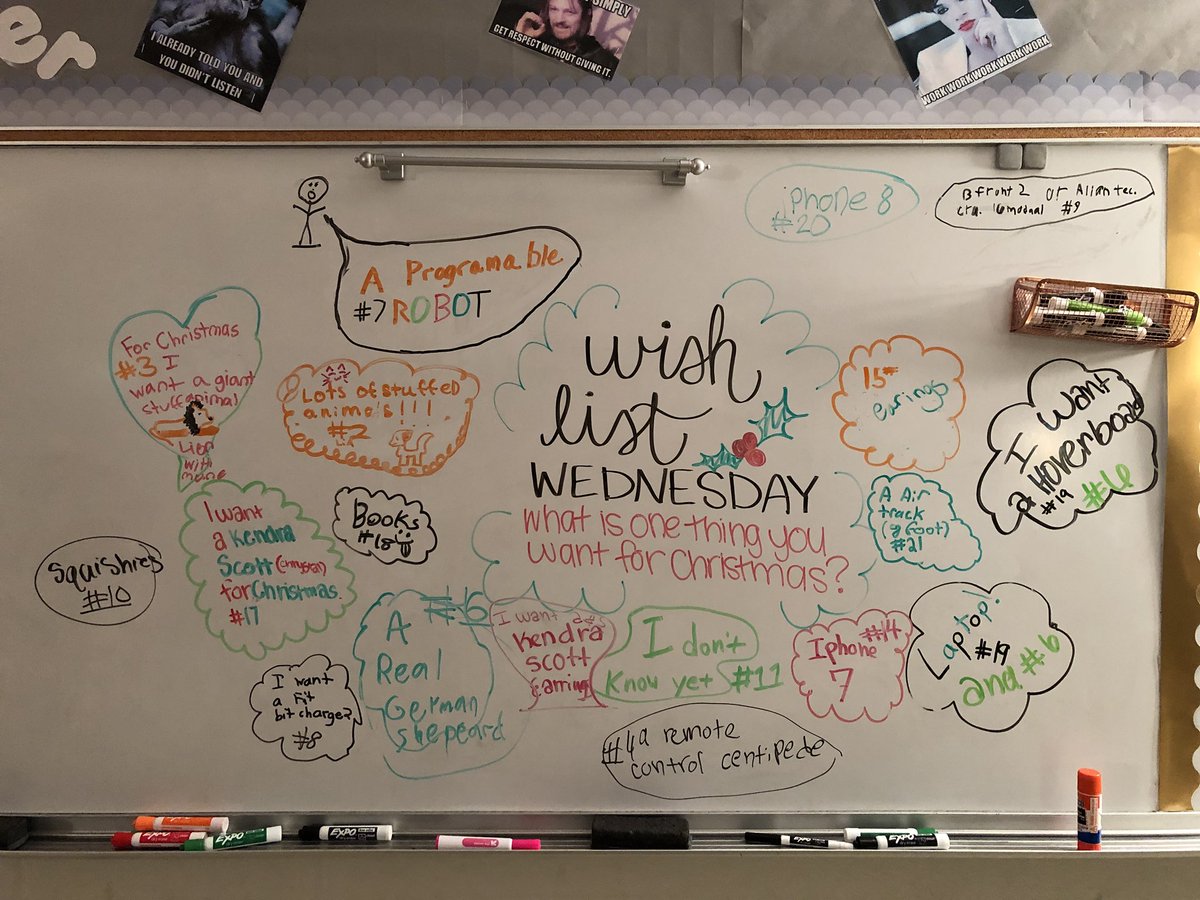 er
I ALREADY TOLD YOU AND
YOU DIDN'T LISTEN
SIMPLY
GET RESPECT WITHOUT GIVING IT.
WORK WORK WORK WORK WORK
iphone 8
#20
Bfront 2 or Alian tec.
#9
A Programable
#7 ROBOT
For Christmas
#3 I
want a giant
stuff animal
Lion
with
mane
Lots of stuffed
animals!!!
#2
wish
list
WEDNESDAY
What is one thing you
want for Christmas?
15#
earings
I want
a Hoverboard
#19 #6
A Air
track
(9 foot)
#21
Books
#18
I want
a Kendra
Scott
for Christmas.
#17
Squishies
#10
#16
A
Real
German
shepeard
I want a #5
Kendra
Scott
earring
I don't
Know yet #11
Iphone #14
7
Laptop!
#19
and #6
I want
a Fit
bit charge2
#8
#4 a remote
control centipede
EXPO
EXPO
EXPO
EXPO
EXPO